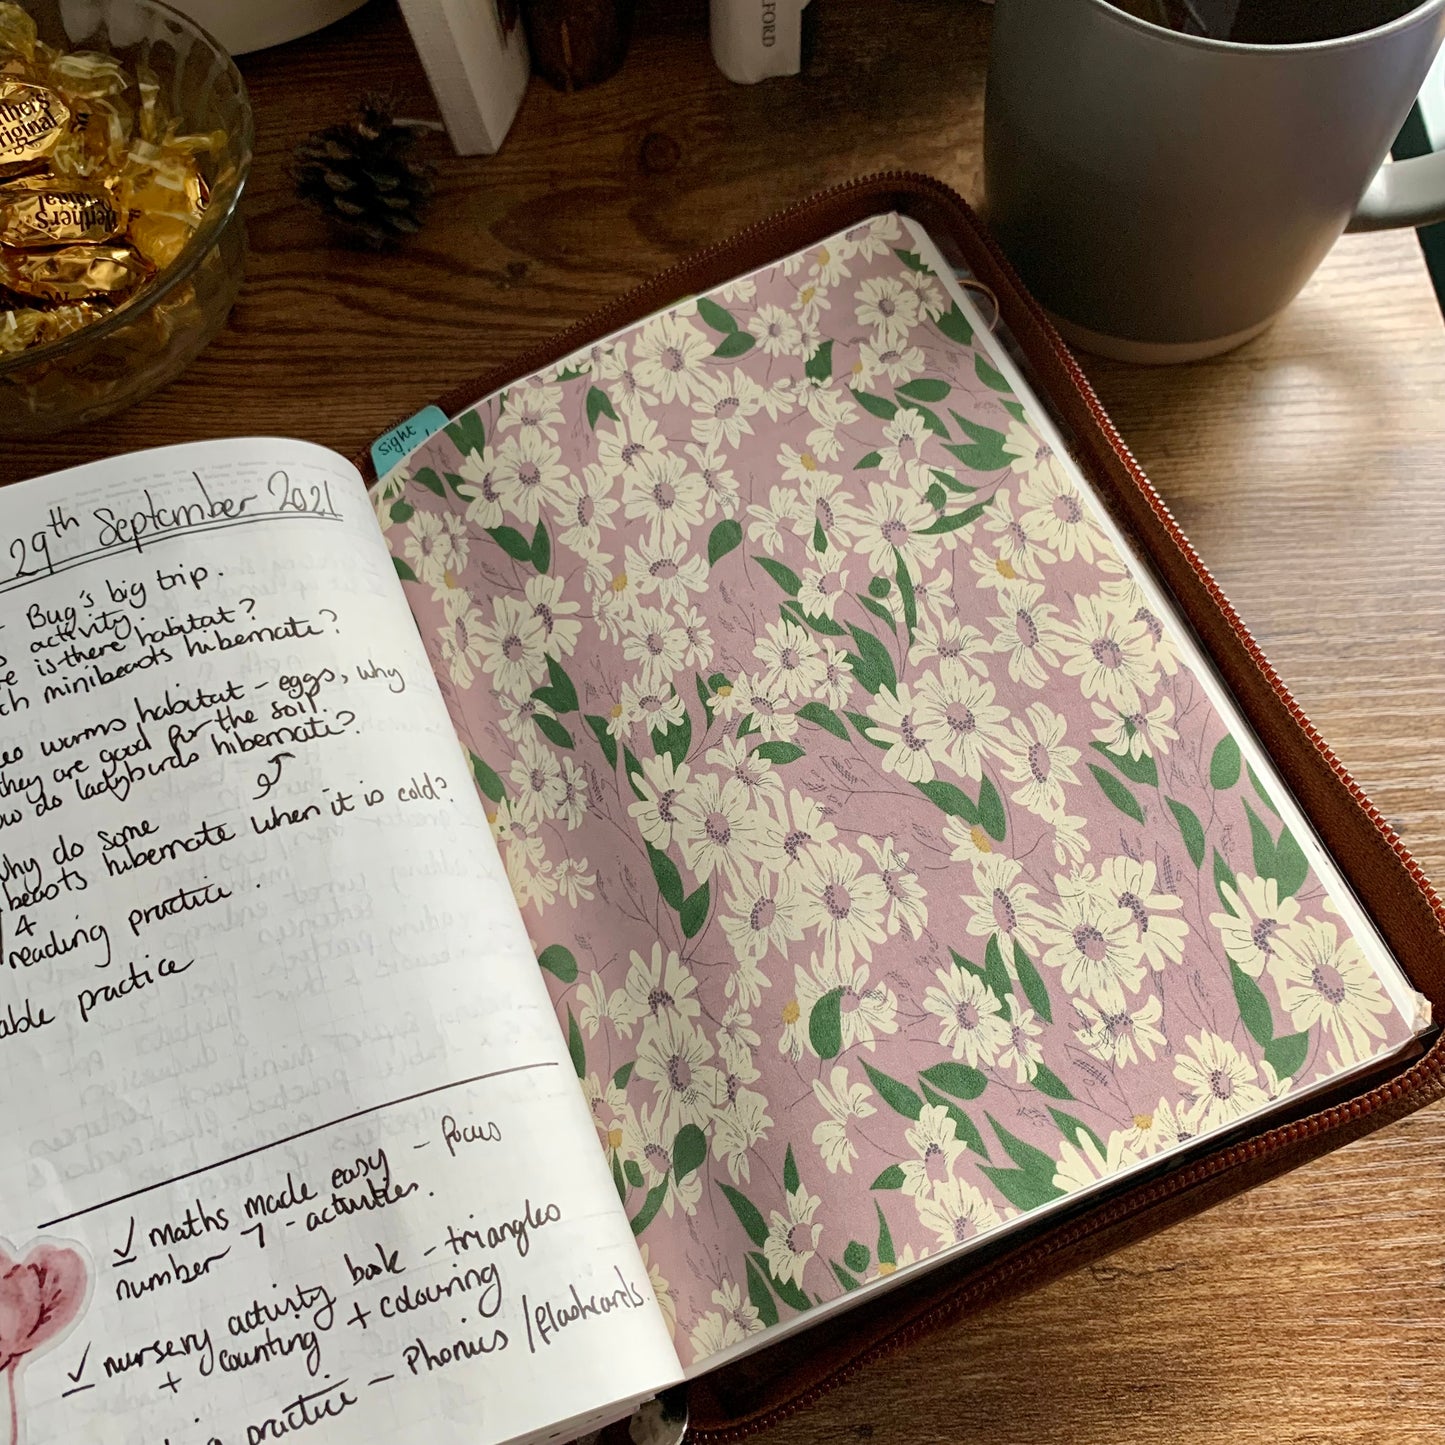 ther's
Original
Werther's
Original
FORD
Sight
29th September 2021
- Bug's big trip.
activity.
is there habitat?
minibeasts hibernate?
worms habitat - eggs, why
they are good for the soil.
do ladybirds hibernate?
why do some
beasts hibernate when it is cold?
4
reading practice.
practice
✓ maths made easy - focus
number 7 - activities.
✓ nursery activity book - triangles
+ counting + colouring
practice - Phonics / flashcards.